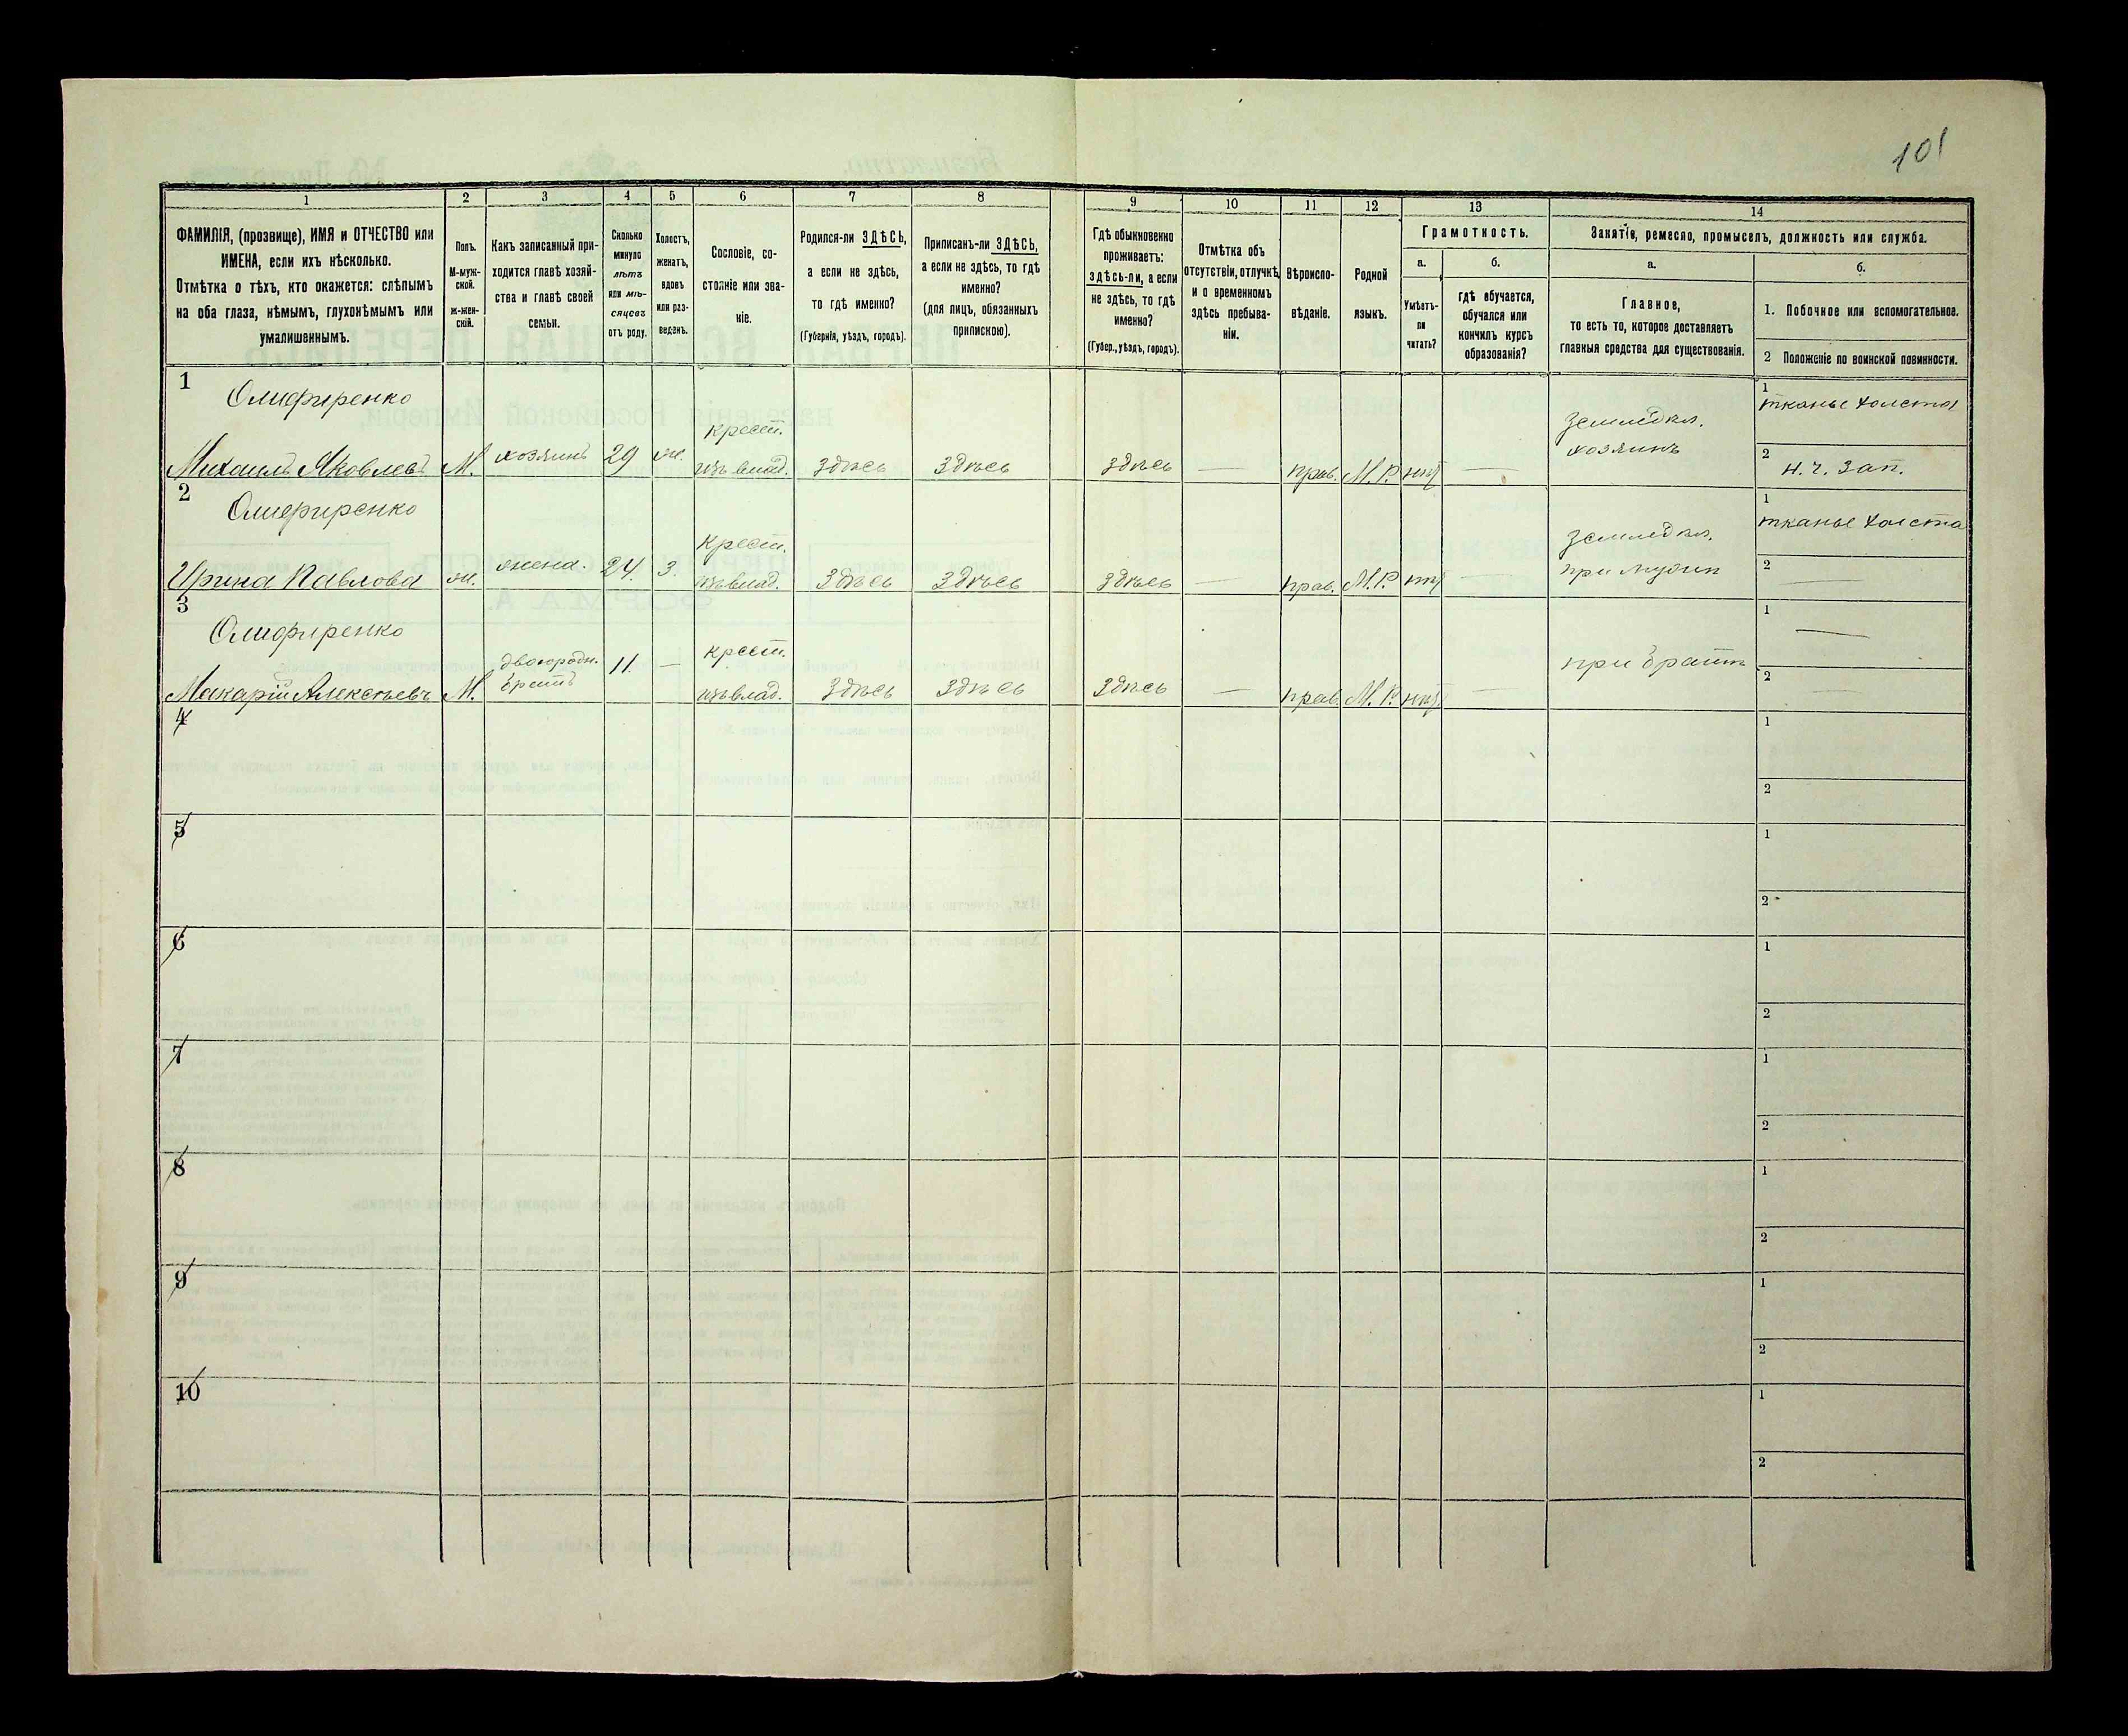 101
1
2
3
4
5
6
7
8
9
10
11
12
13
14
ФАМИЛІЯ, (прозвище), ИМЯ и ОТЧЕСТВО или
ИМЕНА, если ихъ нѣсколько.
Отмѣтка о тѣхъ, кто окажется: слѣпымъ
на оба глаза, нѣмымъ, глухонѣмымъ или
умалишеннымъ.
Полъ.
М-муж-
ской.
Ж-жен-
скій.
Какъ записанный при-
ходится главѣ хозяй-
ства и главѣ своей
семьи.
Сколько
минуло
лѣтъ
или мѣ-
сяцевъ
отъ роду.
Холостъ,
женатъ,
вдовъ
или раз-
веденъ.
Сословіе, со-
стояніе или зва-
ніе.
Родился-ли ЗДѢСЬ,
а если не здѣсь,
то гдѣ именно?
(Губернія, уѣздъ, городъ).
Приписанъ-ли ЗДѢСЬ,
а если не здѣсь, то гдѣ
именно?
(для лицъ, обязанныхъ
припискою).
Гдѣ обыкновенно
проживаетъ:
ЗДѢСЬ-ли, а если
не здѣсь, то гдѣ
именно?
(Губер., уѣздъ, городъ).
Отмѣтка объ
отсутствіи, отлучкѣ
и о временномъ
здѣсь пребыва-
ніи.
Вѣроиспо-
вѣданіе.
Родной
языкъ.
Грамотность.
а.
Умѣетъ-
ли
читать?
б.
гдѣ обучается,
обучался или
кончилъ курсъ
образованія?
Занятіе, ремесло, промыселъ, должность или служба.
а.
Главное,
то есть то, которое доставляетъ
главныя средства для существованія.
б.
1. Побочное или вспомогательное.
2 Положеніе по воинской повинности.
1
Олифиренко
Михаилъ Яковлевъ
М.
хозяинъ
29
ж.
крест.
изъ влад.
Здѣсь
Здѣсь
Здѣсь
—
прав.
М. Р.
нѣтъ
—
Земледѣл.
хозяинъ
1
тканье холста
2
н. ч. зап.
2
Олифиренко
Ирина Павлова
ж.
жена.
24.
З.
крест.
изъ влад.
Здѣсь
Здѣсь
Здѣсь
—
прав.
М. Р.
нѣтъ
—
Земледѣл.
при мужѣ
1
тканье холста
2
—
3
Олифиренко
Макарій Алексѣевъ
М.
двоюродн.
братъ
11.
—
крест.
изъ влад.
Здѣсь
Здѣсь
Здѣсь
—
прав.
М. Р.
нѣтъ
—
при братѣ
1
—
2
—
4
1
2
5
1
2
6
1
2
7
1
2
8
1
2
9
1
2
10
1
2